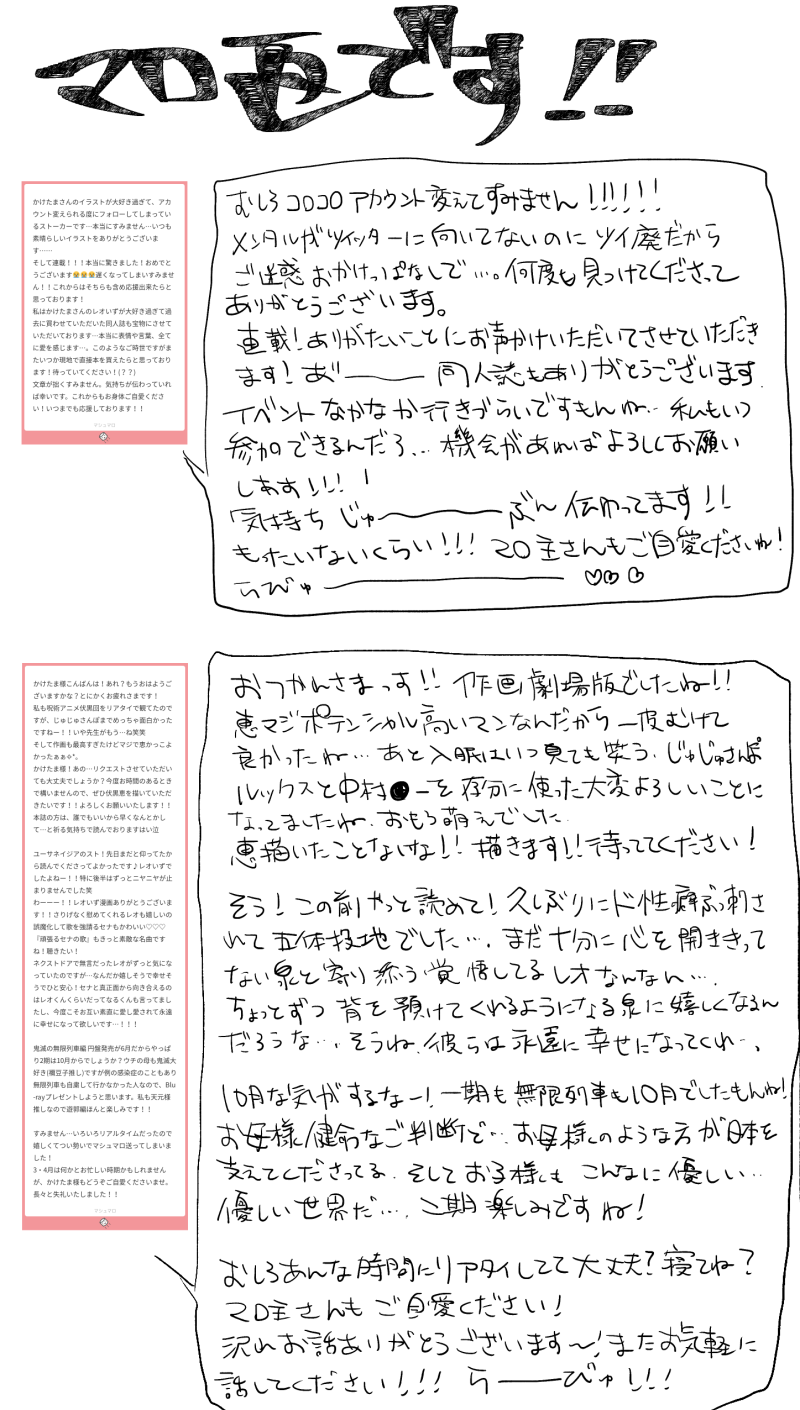 マロ画です!!
かけたまさんのイラストが大好き過ぎて、アカ
ウント変えられる度にフォローしてしまってい
るストーカーです…本当にすみません…いつも
素晴らしいイラストをありがとうございま
す……
そして連載!!!本当に驚きました!おめでと
うございます😭😭😭遅くなってしまいすみませ
ん!!これからはそちらも含め応援出来たらと
思っております!
私はかけたまさんのレオいずが大好き過ぎて過
去に買わせていただいた同人誌も宝物にさせて
いただいております…本当に表情や言葉、全て
に愛を感じます…。このようなご時世ですがま
たいつか現地で直接本を買えたらと思っており
ます!待っていてください!(??)
文章が拙くすみません。気持ちが伝わっていれ
ば幸いです。これからもお身体ご自愛くださ
い!いつまでも応援しております!!
マシュマロ
むしろコロコロアカウント変えてすみません!!!!!!
メンタルがツイッターに向いてないのにツイ廃だから
ご迷惑おかけっぱなしで…。何度も見つけてくださって
ありがとうございます。
連載!ありがたいことにお声かけいただいてさせていただき
ます!あ゛ー 同人誌もありがとうございます.
イベントなかなか行きづらいですもんね… 私もいつ
参加できるんだろ… 機会があればよろしくお願い
しあす!!!!
気持ち じゅーーぶん 伝わってます!!
もったいないくらい!!! マロ主さんもご自愛くださいね!
らびゅー ♡♡♡
かけたま様こんばんは!あれ?もうおはようご
ざいますかな?とにかくお疲れさまです!
私も呪術アニメ伏黒回をリアタイで観てたので
すが、じゅじゅさんぽまでめっちゃ面白かった
ですねー!!いや先生がもう…ね笑笑
そして作画も最高すぎたけどマジで恵かっこよ
かったぁぁ✧*。
かけたま様!あの…リクエストさせていただい
ても大丈夫でしょうか?今度お時間のあるとき
で構いませんので、ぜひ伏黒恵を描いていただ
きたいです!!よろしくお願いいたします!!
本誌の方は、誰でもいいから早くなんとかし
て…と祈る気持ちで読んでおりますはい泣
ユーサネイジアのスト!先日まだと仰ってたか
ら読んでくださってよかったです♪レオいずで
したよねー!!特に後半はずっとニヤニヤが止
まりませんでした笑
わーーー!!レオいず漫画ありがとうございま
す!!さりげなく慰めてくれるレオも嬉しいの
誤魔化して歌を強請るセナもかわいい♡♡♡
『頑張るセナの歌』もきっと素敵な名曲です
ね!聴きたい!
ネクストドアで無言だったレオがずっと気にな
っていたのですが…なんだか嬉しそうで幸せそ
うでひと安心!セナと真正面から向き合えるの
はレオくんくらいだってなるくんも言ってまし
たし、今度こそお互い素直に愛し愛されて永遠
に幸せになって欲しいです…!!!
鬼滅の無限列車編 円盤発売が6月だからやっぱ
り2期は10月からでしょうか?ウチの母も鬼滅大
好き(禰豆子推し)ですが例の感染症のこともあり
無限列車も自粛して行かなかった人なので、Blu
-rayプレゼントしようと思います。私も天元様
推しなので遊郭編ほんと楽しみです!!
すみません…いろいろリアルタイムだったので
嬉しくてつい勢いでマシュマロ送ってしまいま
した!
3・4月は何かとお忙しい時期かもしれません
が、かけたま様もどうぞご自愛くださいませ。
長々と失礼いたしました!!
マシュマロ
おつかんさまっす!! 作画劇場版でしたね!!
恵マジポテンシャル高いマンなんだから一皮むけて
良かったね… あと入眠はいつ見ても笑う、じゅじゅさんぽ
ルックスと中村●一を存分に使った大変よろしいことに
なってましたね.おもろ萌えでした.
恵描いたことないな!! 描きます!!待っててください!
そう!この前やっと読めて!久しぶりにド性癖ぶっ刺さ
れて五体投地でした…. まだ十分に心を開ききって
ない泉と寄り添う覚悟してるレオなんなん….
ちょっとずつ背を預けてくれるようになる泉に嬉しくなるん
だろうな…、そうね.彼らは永遠に幸せになってくれ…、
10月な気がするなー!一期も無限列車も10月でしたもんね!
お母様 健命なご判断で… お母様のような方が日本を
支えてくださってる.そしてお子様もこんなに優しい…
優しい世界だ….二期楽しみですね!
むしろあんな時間にリアタイしてて大丈夫?寝てね?
マロ主さんもご自愛ください!
沢山お話ありがとうございます〜!またお気軽に
話してください!!! らーびゅ!!!